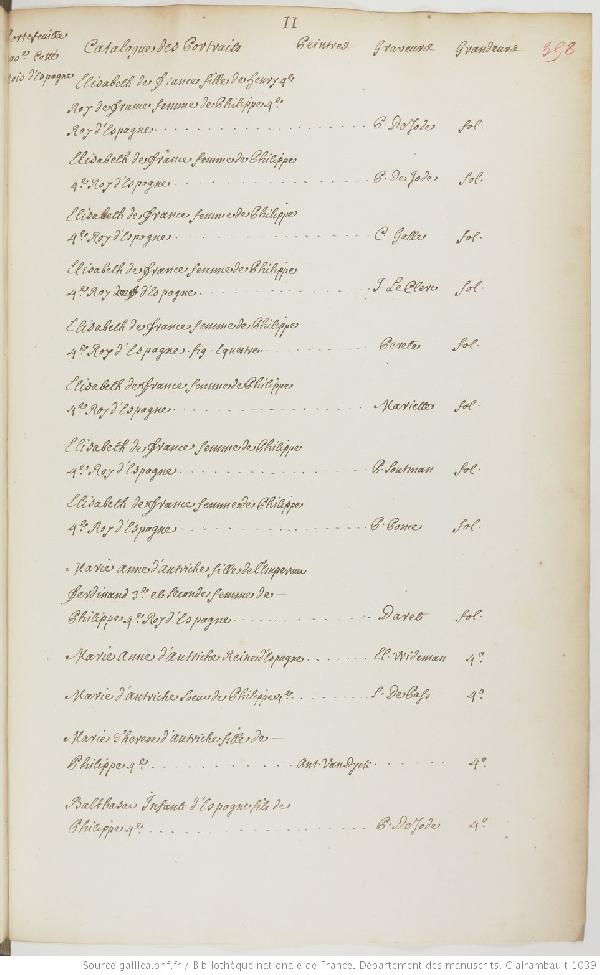 II
Portefeuille
Rois d'Espagne
Catalogue des Portraits Peintres Graveurs Grandeurs 398
Elisabeth de france fille de henry 4e
Roy de france femme de Philippe 4e
Roy d'Espagne . . . . . . P. De Jode fol.
Elisabeth de france femme de Philippe
4e Roy d'Espagne . . . . . . P. De Jode fol.
Elisabeth de france femme de Philippe
4e Roy d'Espagne . . . . . . C. Galle fol.
Elisabeth de france femme de Philippe
4e Roy d'Espagne . . . . . . J. Le Clerc fol.
Elisabeth de france femme de Philippe
4e Roy d'Espagne fig. Equestre . . . . . . fol.
Elisabeth de france femme de Philippe
4e Roy d'Espagne . . . . . . Mariette fol.
Elisabeth de france femme de Philippe
4e Roy d'Espagne . . . . . . P. Soutman fol.
Elisabeth de france femme de Philippe
4e Roy d'Espagne . . . . . . P. Ponce fol.
Marie Anne d'Autriche fille de l'Empereur
ferdinand 3e et seconde femme de —
Philippe 4e Roy d'Espagne . . . . . . Daret fol.
Marie Anne d'Autriche Reine d'Espagne . . . . . . El. Wideman 4o
Marie d'Autriche soeur de Philippe 4e . . . . . . S. De Pass 4o
Marie Therese d'Autriche fille de —
Philippe 4e . . . . . . Ant. Van Dyck . . . . . . 4o
Balthasar Infant d'Espagne fils de
Philippe 4e . . . . . . P. De Jode 4o
Source gallica.bnf.fr / Bibliothèque nationale de France. Département des manuscrits. Clairambault 1039